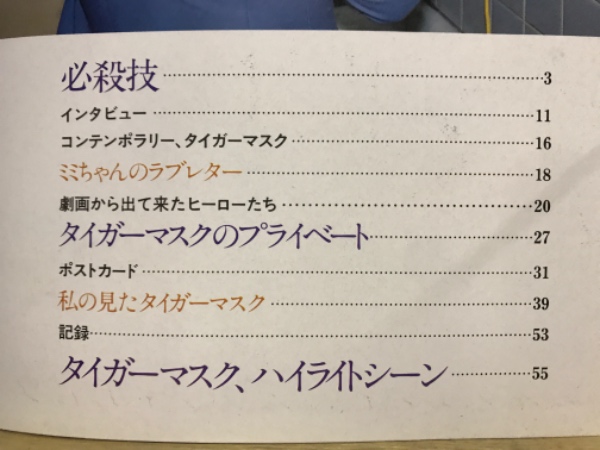 必殺技……………………3
インタビュー……………………11
コンテンポラリー、タイガーマスク……………………16
ミミちゃんのラブレター……………………18
劇画から出て来たヒーローたち……………………20
タイガーマスクのプライベート……………………27
ポストカード……………………31
私の見たタイガーマスク……………………39
記録……………………53
タイガーマスク、ハイライトシーン……………………55